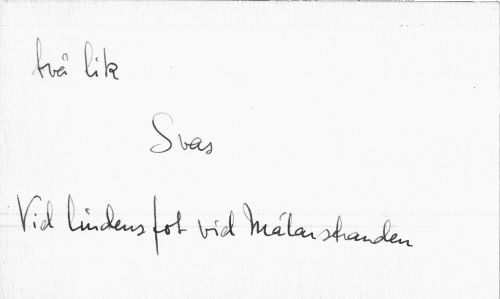 två lik
Svas
Vid lindens fot vid Mälarstranden